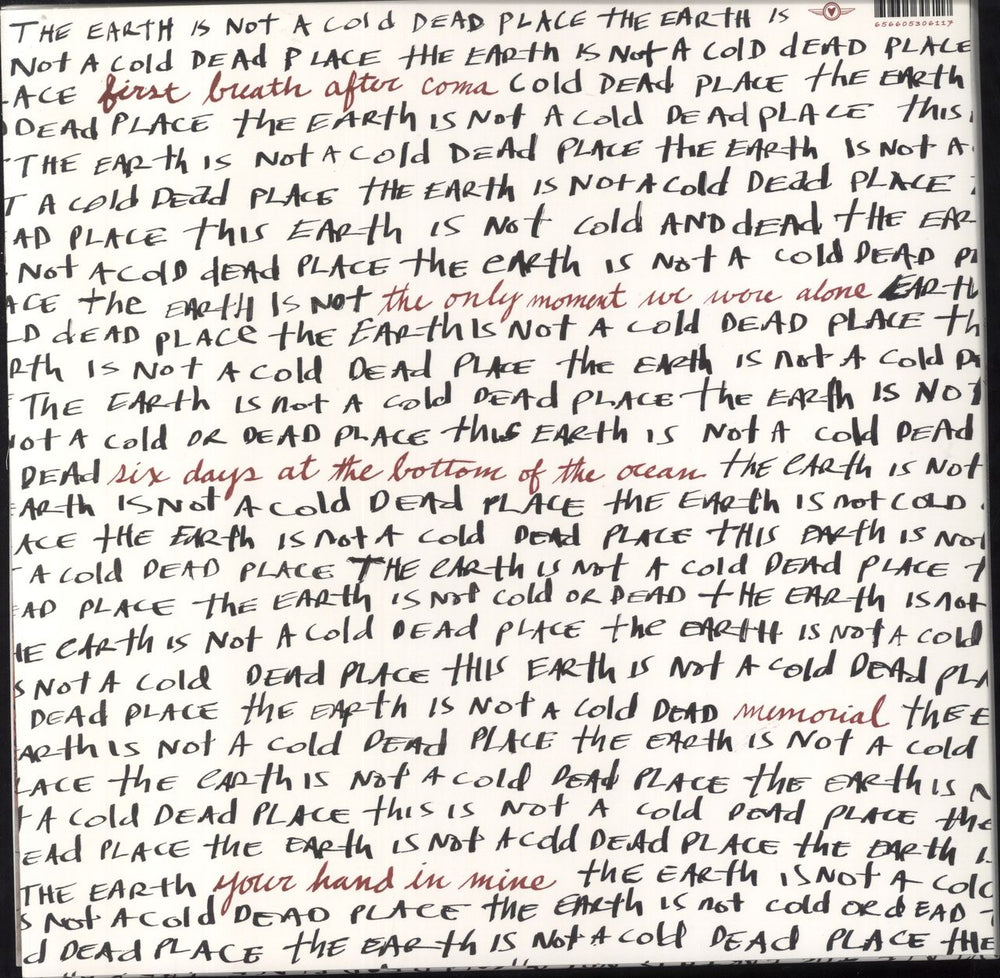 THE EARTH IS NOT A COld DEAD PLACE THE EARTH IS
656605306117
Not A Cold DEAD PLACE tHE EARth IS Not A COlD dEAD PLACE
ACE first breath after coma Cold DEAD PLACE the EARth
DEAd PLACE the EARth IS Not A Cold DEAd PLACE this
THE EARth IS Not A Cold DEAd PLACE the EARth IS Not A
T A cold DeaD PLACE tHE EARth IS Not A Cold DEAD PLACE
AD PLACE this EARth IS Not Cold AND dead tHE EAR
Not A COlD dEAD PLACE tHE EARth IS Not A Cold DEAD Pl
ACE the EARtH IS NOT the only moment we were alone EARtH
D dEAD PLACE the EARth IS Not A Cold DEAD PLACE th
Rth IS Not A Cold DEAd PLACE the EARth IS not A Cold DE
THE EARth IS not A Cold DEAd PLACE the EARth IS NOT
ot A Cold OR DEAD PLACE this EARth IS Not A Cold DEAD
DEAD six days at the bottom of the ocean the EARth IS Not
EARth IS Not A Cold DEAD PLACE the EARth IS not COLD
ACE tHE EARth IS not A Cold DEAd PLACE THIS EARth IS Not
A Cold DEAD PLACE THE EARth IS not A Cold DEAd PLACE
AD PLACE the EARth IS Not Cold OR DEAD tHE EARth IS not
HE EARth IS Not A Cold DEAd PLACE the EARtH IS Not A Cold
S Not A Cold DEAd PLACE tHIS EARth IS Not A Cold DEAd PLA
DEAd PLACE the EARth IS Not A Cold DEAD memorial the E
ARth IS Not A Cold DEAd PLACE the EARth IS Not A Cold
LACE the EARth IS Not A Cold DEAd PLACE the EARth IS N
t A Cold DEAD PLACE this IS Not A Cold DEAd PLACE the
EAd PLACE the EARth IS Not A Cold DEAd PLACE the EARth I
THE EARth your hand in mine the EARth IS Not A Cold
S Not A Cold DEAD PLACE the EARth IS not Cold OR dEAD
d DEAD PLACE the EARth IS Not A Cold DEAD PLACE tHE